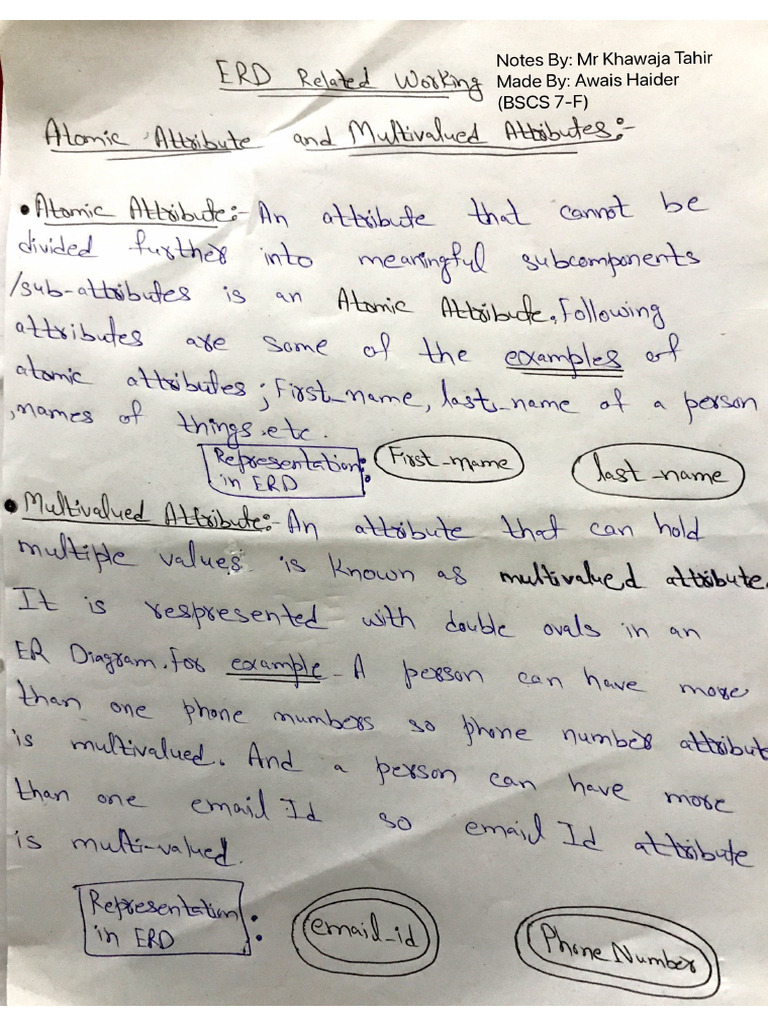 ERD Related Working
Notes By: Mr Khawaja Tahir
Made By: Awais Haider
(BSCS 7-F)
Atomic Attribute and Multivalued Attributes:-
• Atomic Attribute:- An attribute that cannot be
divided further into meaningful subcomponents
/sub-attributes is an Atomic Attribute. Following
attributes are some of the examples of
atomic attributes; First_name, last_name of a person
, names of things.etc.
Representation
in ERD :
First_name
last_name
• Multivalued Attribute:- An attribute that can hold
multiple values is known as multivalued attribute.
It is respresented with double ovals in an
ER Diagram. For example - A person can have more
than one phone numbers so phone number attribut
is multivalued. And a person can have more
than one email Id so email Id attribute
is multi-valued.
Representation
in ERD :
email_id
Phone Number